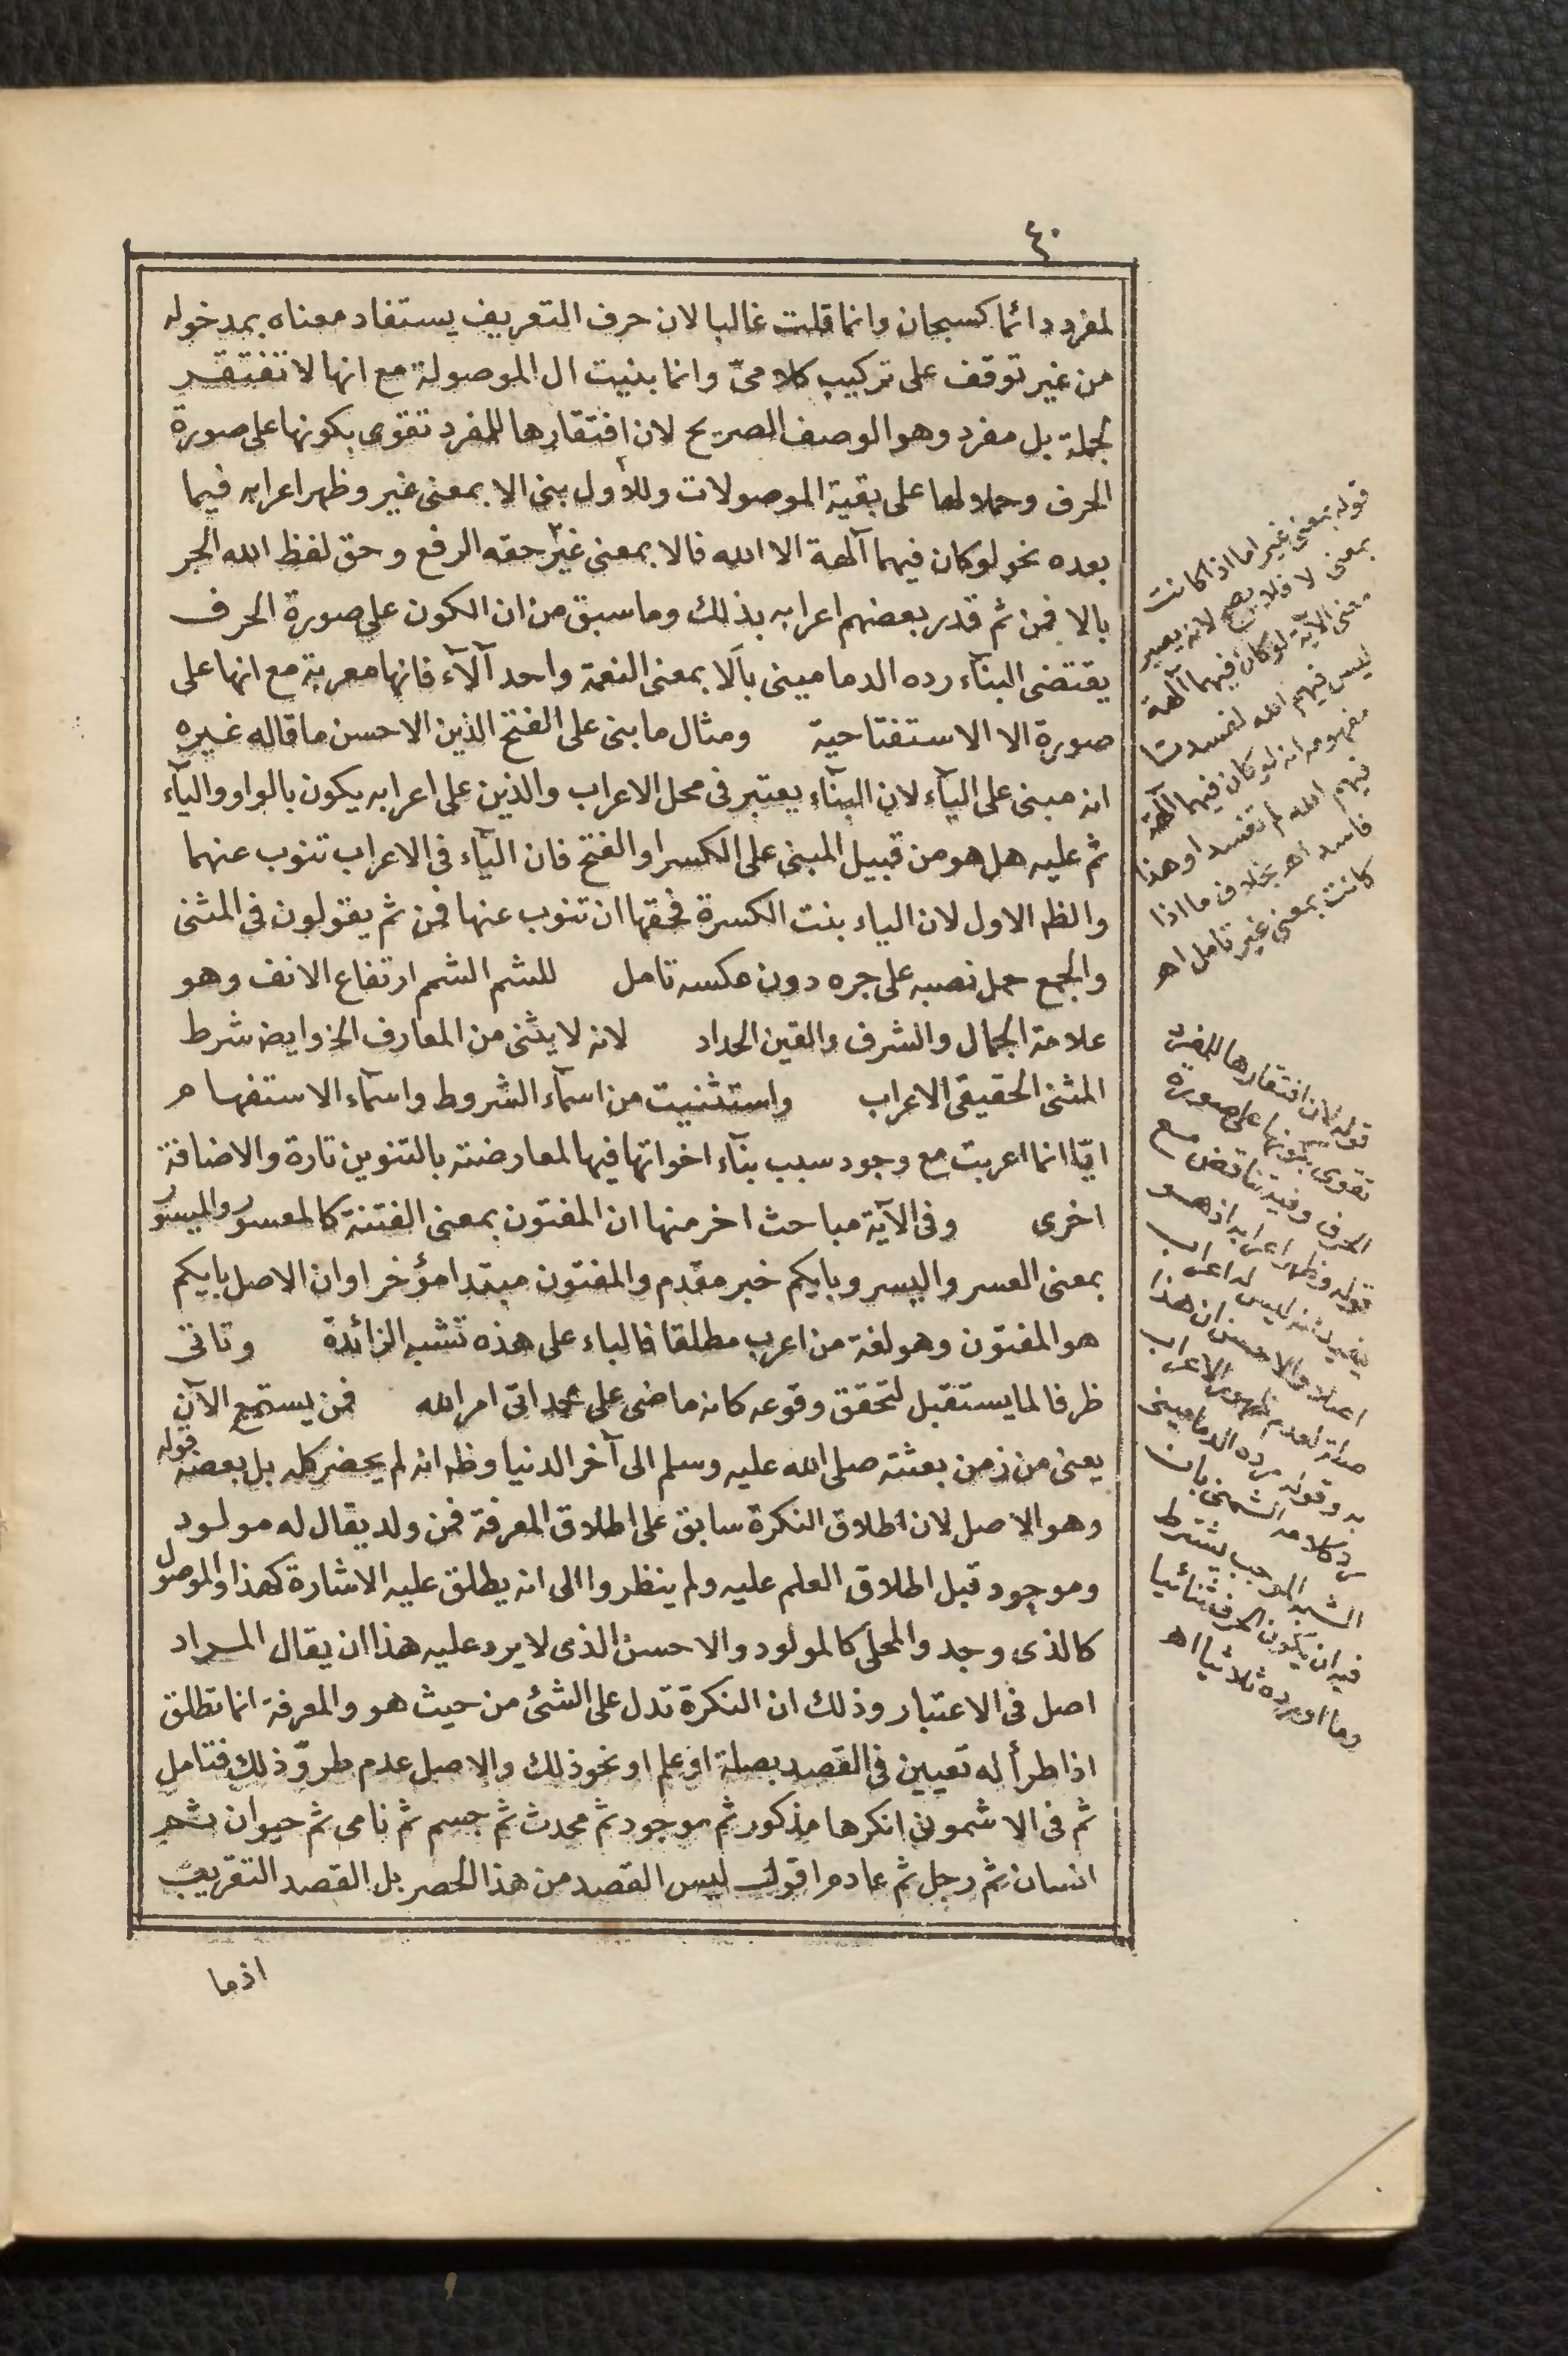 ٤٠
لمفرد دائما كسبحان وانما قلت غالبا لان حرف التعريف يستفاد معناه بمدخوله
من غير توقف على تركيب كلامىّ وانما بنيت ال الموصولة مع انها لا تفتقر
لجملة بل مفرد وهو الوصف الصريح لان افتقارها للمفرد تقوى بكونها على صورة
الحرف وحملا لها على بقية الموصولات وللأول بنى الا بمعنى غير وظهر اعرابه فيما
بعده نحو لو كان فيهما آلهة الا الله فالا بمعنى غير حقه الرفع وحق لفظ الله الجر
بالا فمن ثم قدر بعضهم اعرابه بذلك وما سبق من ان الكون على صورة الحرف
يقتضى البنآء رده الدمامينى بألا بمعنى النعمة واحد آلآء فانها معربة مع انها على
صورة الا الاستفتاحية ومثال ما بنى على الفتح الذين الاحسن ما قاله غيره
انه مبنى على اليآء لان البنآء يعتبر فى محل الاعراب والذين على اعرابه يكون بالواو واليآء
ثم عليه هل هو من قبيل المبنى على الكسر او الفتح فان اليآء فى الاعراب تنوب عنهما
والظ الاول لان الياء بنت الكسرة فحقها ان تنوب عنها فمن ثم يقولون فى المثنى
والجمع حمل نصبه على جره دون عكسه تامل للشم الشم ارتفاع الانف وهو
علامة الجمال والشرف والقين الحداد لانه لا يثنى من المعارف الخ وايضا شرط
المثنى الحقيقى الاعراب واستثنيت من اسمآء الشروط واسمآء الاستفهام
ايّا انما اعربت مع وجود سبب بنآء اخواتها فيها لمعارضته بالتنوين تارة والاضافة
اخرى وفى الآية مباحث اخر منها ان المفتون بمعنى الفتنة كالمعسور والميسور
بمعنى العسر واليسر وبايكم خبر مقدم والمفتون مبتدا مؤخر او ان الاصل بايكم
هو المفتون وهو لغة من اعرب مطلقا فالباء على هذه تشبه الزائدة وتاتى
ظرفا لما يستقبل لتحقق وقوعه كانه ماضى على حد اتى امر الله فمن يستمع الآن
يعنى من زمن بعثته صلى الله عليه وسلم الى آخر الدنيا وظ انه لم يحضر كله بل بعضه قوله
وهو الاصل لان اطلاق النكرة سابق على اطلاق المعرفة فمن ولد يقال له مولود
وموجود قبل اطلاق العلم عليه ولم ينظروا الى انه يطلق عليه الاشارة كهذا والموصول
كالذى وجد والمحلى كالمولود والاحسن الذى لا يرد عليه هذا ان يقال المراد
اصل فى الاعتبار وذلك ان النكرة تدل على الشئ من حيث هو والمعرفة انما تطلق
اذا طرأ له تعيين فى القصد بصلة او علم او نحو ذلك والاصل عدم طروّ ذلك فتامل
ثم فى الاشمونى انكرها مذكور ثم موجود ثم محدث ثم جسم ثم نامى ثم حيوان ثم
انسان ثم رجل ثم عادم اقول ليس القصد من هذا الحصر بل القصد التقريب
اذما
قوله بمعنى غير اما اذا كانت
بمعنى لا فلا يصح لانه يصير
معنى الآية لو كان فيهما آلهة
ليس فيهم الله لفسدتا
مفهومه انه لو كان فيهما آلهة
فيهم الله لم تفسدا وهذا
فاسد اهـ بخلاف ما اذا
كانت بمعنى غير تامل اهـ
قوله لان افتقارها للمفرد
تقوى بكونها على صورة
الحرف وفيه تناقض مع
قوله وظهر اعرابه اذ هو
يفيد انه ليس له اعراب
اصلا والاحسن ان هذا
صلة لعدم ظهور الاعراب
به وقوله رده الدمامينى
رد كلامه الشمنى بان
الشبه الموجب يشترط
فيه ان يكون الحرف ثنائيا
وما اورده ثلاثيا اهـ